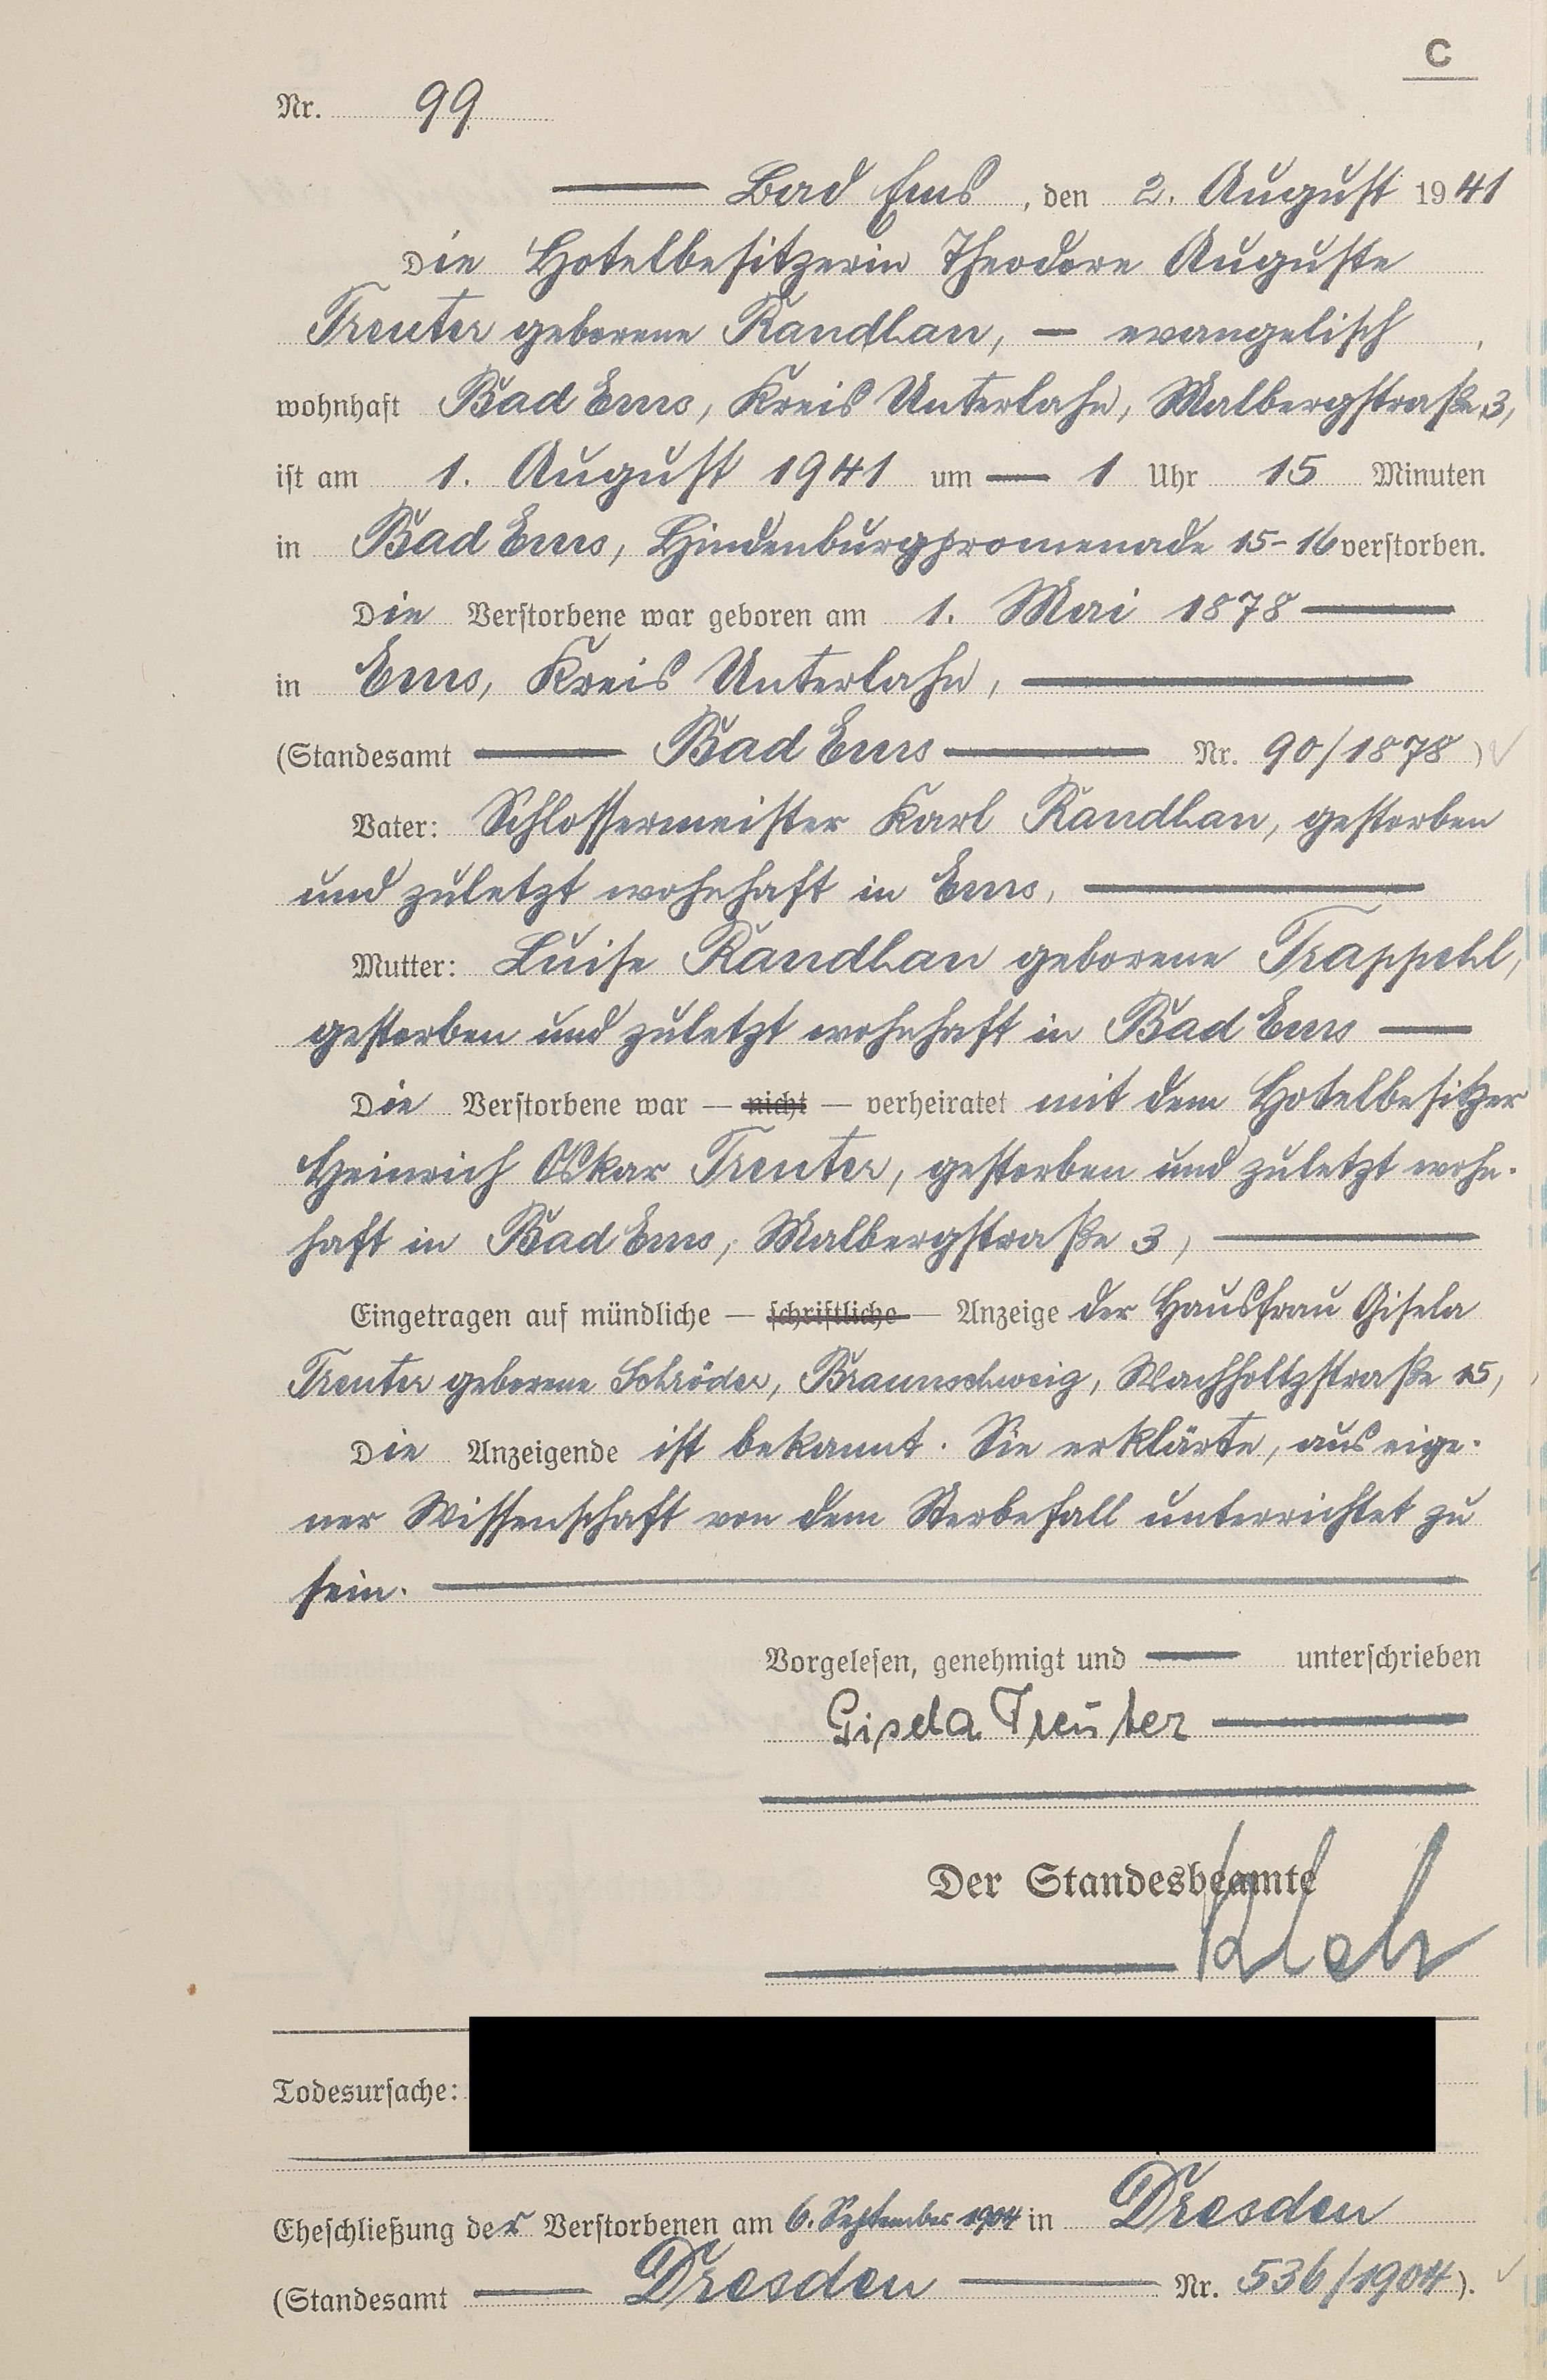 C
Nr. 99
Bad Ems, den 2. August 1941
Die Hotelbesitzerin Theodore Auguste
Treuter geborene Kandlan, — evangelisch,
wohnhaft Bad Ems, Kreis Unterlahn, Malbergstraße 3,
ist am 1. August 1941 um — 1 Uhr 15 Minuten
in Bad Ems, Hindenburgpromenade 15-16 verstorben.
Die Verstorbene war geboren am 1. Mai 1878
in Ems, Kreis Unterlahn,
(Standesamt Bad Ems Nr. 90/1878)
Vater: Schlossermeister Karl Kandlan, gestorben
und zuletzt wohnhaft in Ems,
Mutter: Luise Kandlan geborene Trappehl,
gestorben und zuletzt wohnhaft in Bad Ems —
Die Verstorbene war — nicht — verheiratet mit dem Hotelbesitzer
Heinrich Oskar Treuter, gestorben und zuletzt wohn-
haft in Bad Ems, Malbergstraße 3,
Eingetragen auf mündliche — schriftliche — Anzeige der Hausfrau Gisela
Treuter geborene Schröder, Braunschweig, Wachholtzstraße 15,
Die Anzeigende ist bekannt. Sie erklärte, aus eige-
ner Wissenschaft von dem Sterbefall unterrichtet zu
sein.
Vorgelesen, genehmigt und — unterschrieben
Gisela Treuter
Der Standesbeamte
Todesursache:
Eheschließung der Verstorbenen am 6. September 1904 in Dresden
(Standesamt Dresden Nr. 536/1904).